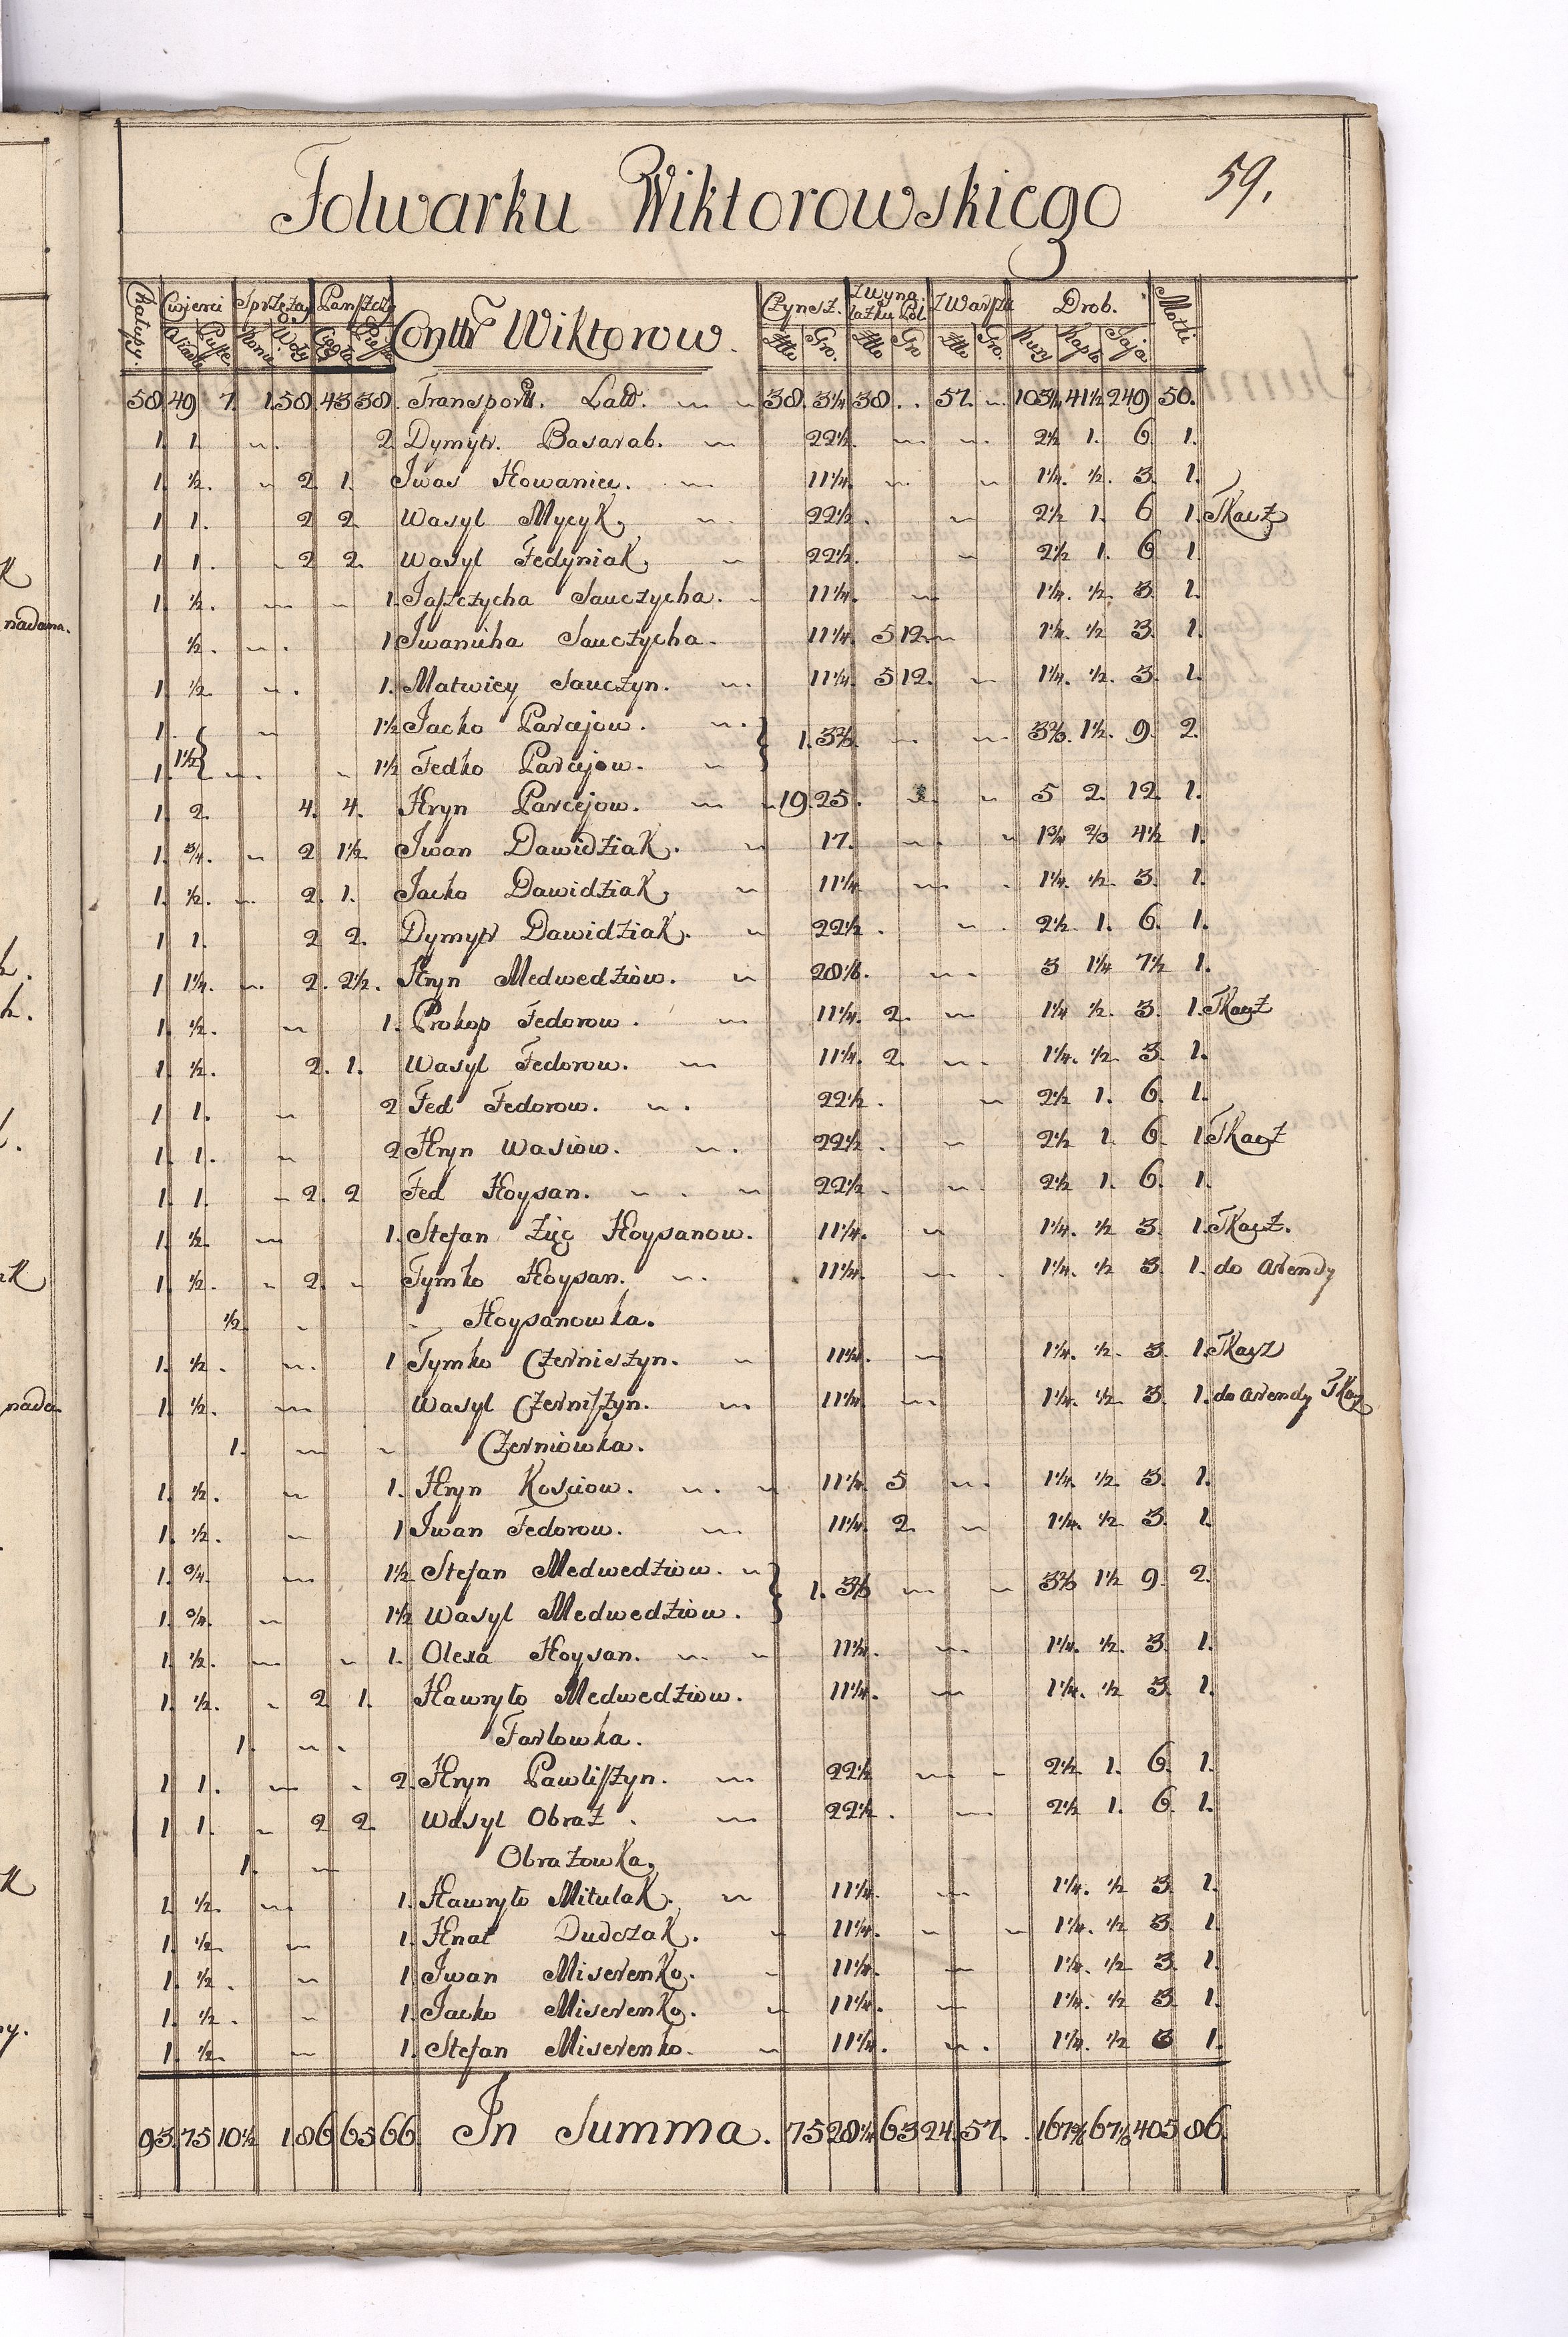 59.
Folwarku Wiktorowskiego
Chałupy. Cwierci Sprzężay Czynsz. Z Wyna lazku Drob. Motki
Pulke. Konie Woły Złłe Gro. Złłe Gro Złłe Gro. Kury Kapło Jaja
Conttr Wiktorow.
58 49 7. 1. 58. 43 38. Transport. Latt. 38. 3¼ 38. 57. 103¾ 41½ 249 50.
1. 1. 2. Dymytr. Basarab. 22½. 2½ 1. 6. 1.
1. ½. 2. 1. Iwas Howaniec. 11¼. 1¼. ½. 3. 1.
1. 1. 2 2. Wasyl Mycyk, 22½. 2½ 1. 6 1. Tkacz
1. 1. 2 2. Wasyl Fedyniak, 22½. 2½ 1. 6. 1.
1. ½. 1. Jaszczycha Sauczycha. 11¼. 1¼. ½. 3. 1.
½. 1 Iwanicha Sauczycha. 11¼. 5 12. 1¼. ½ 3. 1.
1. ½. 1. Matwiey Sauczyn. 11¼. 5 12. 1¼. ½. 3. 1.
1. 1½ 1½ Jacko Parcejow. 1. 3⅗. 3⅔. 1½. 9. 2.
1. 1½ Fedko Parcejow.
1. 2. 4. 4. Hryn Parcejow. 19. 25. 5 2. 12. 1.
1. ¾. 2. 1½. Iwan Dawidziak. 17. 1¾ ⅔ 4½ 1.
1. ½. 2. 1. Jacko Dawidziak, 11¼ 1¼. ½. 3. 1.
1. 1. 2 2. Dymytr Dawidziak. 22½. 2½ 1. 6. 1.
1. 1¼. 2. 2½. Hryn Medwedziow. 28⅛. 3 1¼ 7½ 1.
1. ½. 1. Prokop Fedorow. 11¼. 2. 1¼ ½. 3. 1. Tkacz
1. ½. 2. 1. Wasyl Fedorow. 11¼. 2. 1¼. ½. 3. 1.
1 1. 2 Fed Fedorow. 22½. 2½ 1. 6. 1.
1. 1. 2 Hryn Wasiow. 22½. 2½ 1. 6. 1. Tkacz
1. 1. 2. 2 Fed Hoysan. 22½. 2½ 1. 6. 1.
1. ½. 1. Stefan Zięć Hoysanow. 11¼. 1¼. ½ 3. 1. Tkacz.
1. ½. 2. Tymko Hoysan. 11¼. 1¼. ½ 3. 1. do Arendy
½ Hoysanowka.
1. ½. 1 Tymko Czerniszyn. 11¼. 1¼. ½. 3. 1. Tkacz
1. ½. Wasyl Czerniszyn. 11¼. 1¼. ½ 3. 1. do Arendy Tkacz
1. Czerniowka.
1. ½. 1. Hryn Kosciow. 11¼. 5 1¼. ½. 3. 1.
1. ½. 1 Iwan Fedorow. 11¼. 2. 1¼. ½ 3. 1.
1. ¾. 1½. Stefan Medwedziow. 1. 3⅗ 3⅔ 1½ 9. 2.
1. ¾. 1½ Wasyl Medwedziow.
1. ½. 1. Olexa Hoysan. 11¼. 1¼. ½. 3. 1.
1. ½. 2 1. Hawryło Medwedziow. 11¼. 1¼. ½ 3. 1.
1. Farlowka.
1 1. 2. Hryn Pawliszyn. 22½ 2½ 1. 6. 1.
1 1. 2 2. Wasyl Obraz. 22½. 2½ 1. 6. 1.
1. Obrazowka,
1. ½. 1. Hawryło Mitulak. 11¼. 1¼. ½ 3. 1.
1. ½. 1. Hnat Dudczak. 11¼. 1¼. ½ 3. 1.
1. ½. 1 Iwan Miserenko. 11¼. 1¼. ½ 3. 1.
1. ½. 1. Jacko Miserenko. 11¼. 1¼. ½ 3. 1.
1. ½. 1. Stefan Miserenko. 11¼. 1¼. ½ 3 1.
93. 75 10½ 1. 86 65 66. In Summa. 75 28¼ 63 24. 57. 405 86.
nadana.